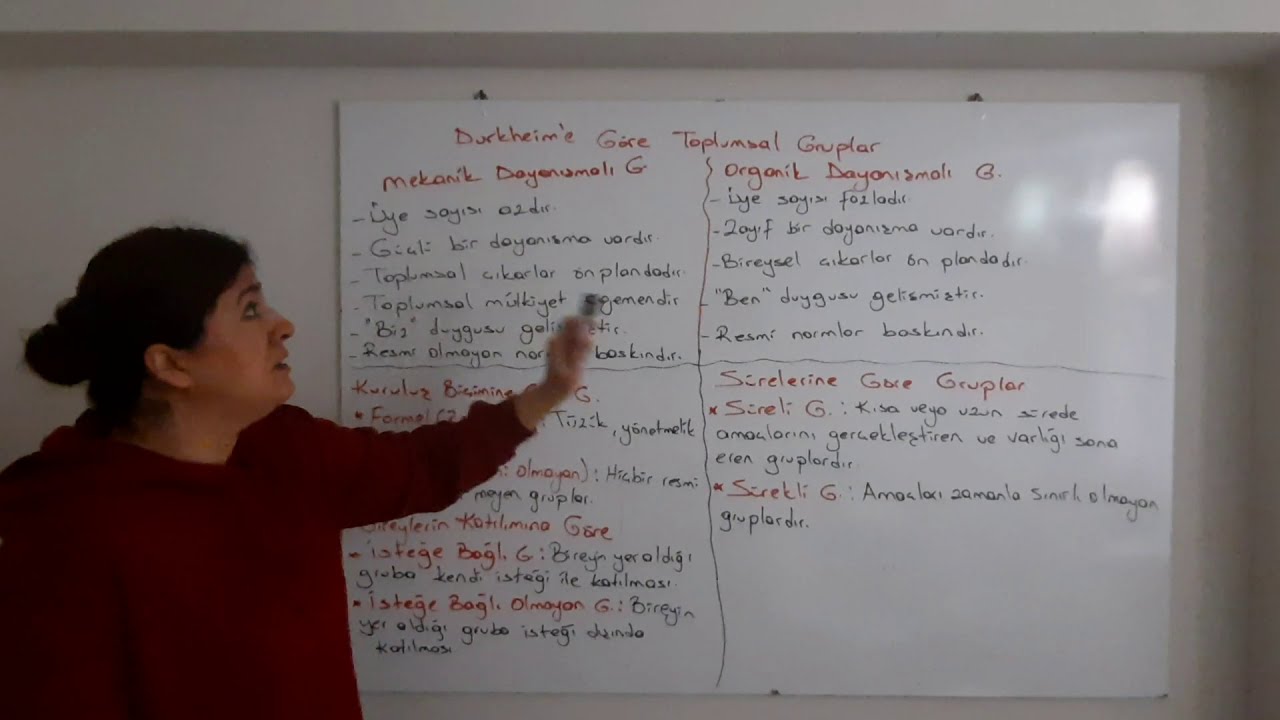 Durkheim'e Göre Toplumsal Gruplar
Mekanik Dayanışmalı G.
- Üye sayısı azdır.
- Güçlü bir dayanışma vardır.
- Toplumsal çıkarlar ön plandadır.
- Toplumsal mülkiyet egemendir
- "Biz" duygusu
- Resmi olmayan baskındır.
Organik Dayanışmalı G.
- Üye sayısı fazladır.
- Zayıf bir dayanışma vardır.
- Bireysel çıkarlar ön plandadır.
- "Ben" duygusu gelişmiştir.
- Resmi normlar baskındır.
Kuruluş Biçimine G.
* Formel Tüzik, yönetmelik
olmayan): Hiçbir resmi
gruplar.
Bireylerin Katılımına Göre
* İsteğe Bağlı G.: Bireyin yer aldığı
gruba kendi isteği ile katılması.
* İsteğe Bağlı Olmayan G.: Bireyin
yer aldığı gruba isteği dışında
katılması
Sürelerine Göre Gruplar
* Süreli G.: Kısa veya uzun sürede
amaçlarını gerçekleştiren ve varlığı sona
eren gruplardır.
* Sürekli G.: Amaçları zamanla sınırlı olmayan
gruplardır.